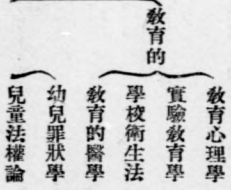 教育的
教育心理學
實驗教育學
學校衛生法
教育的醫學
幼兒罪狀學
兒童法權論